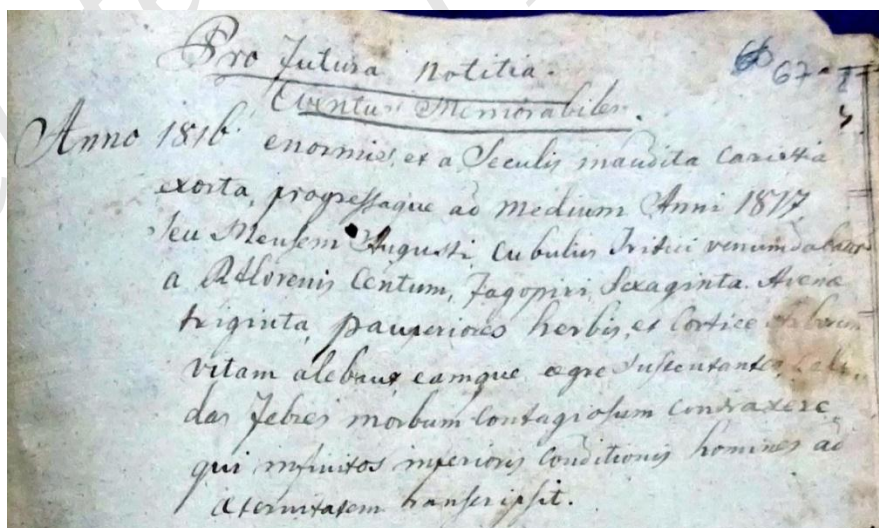 Pro futura notitia.
67
Eventus Memorabiles.
Anno 1816 enormis, et a Seculis inaudita Caristia
exorta, progressaque ad medium Anni 1817,
seu Mensem Augusti, Cubulus Tritici venumdabatur
a Rflorenis Centum, Fagopiri Sexaginta. Avenæ
triginta, pauperiores herbis, et Cortice Arborum
vitam alebant eamque ægre sustentantes,
das Febres morbum Contagiosum Contraxere,
qui infinitos inferioris Conditionis homines ad
æternitatem transcripsit.